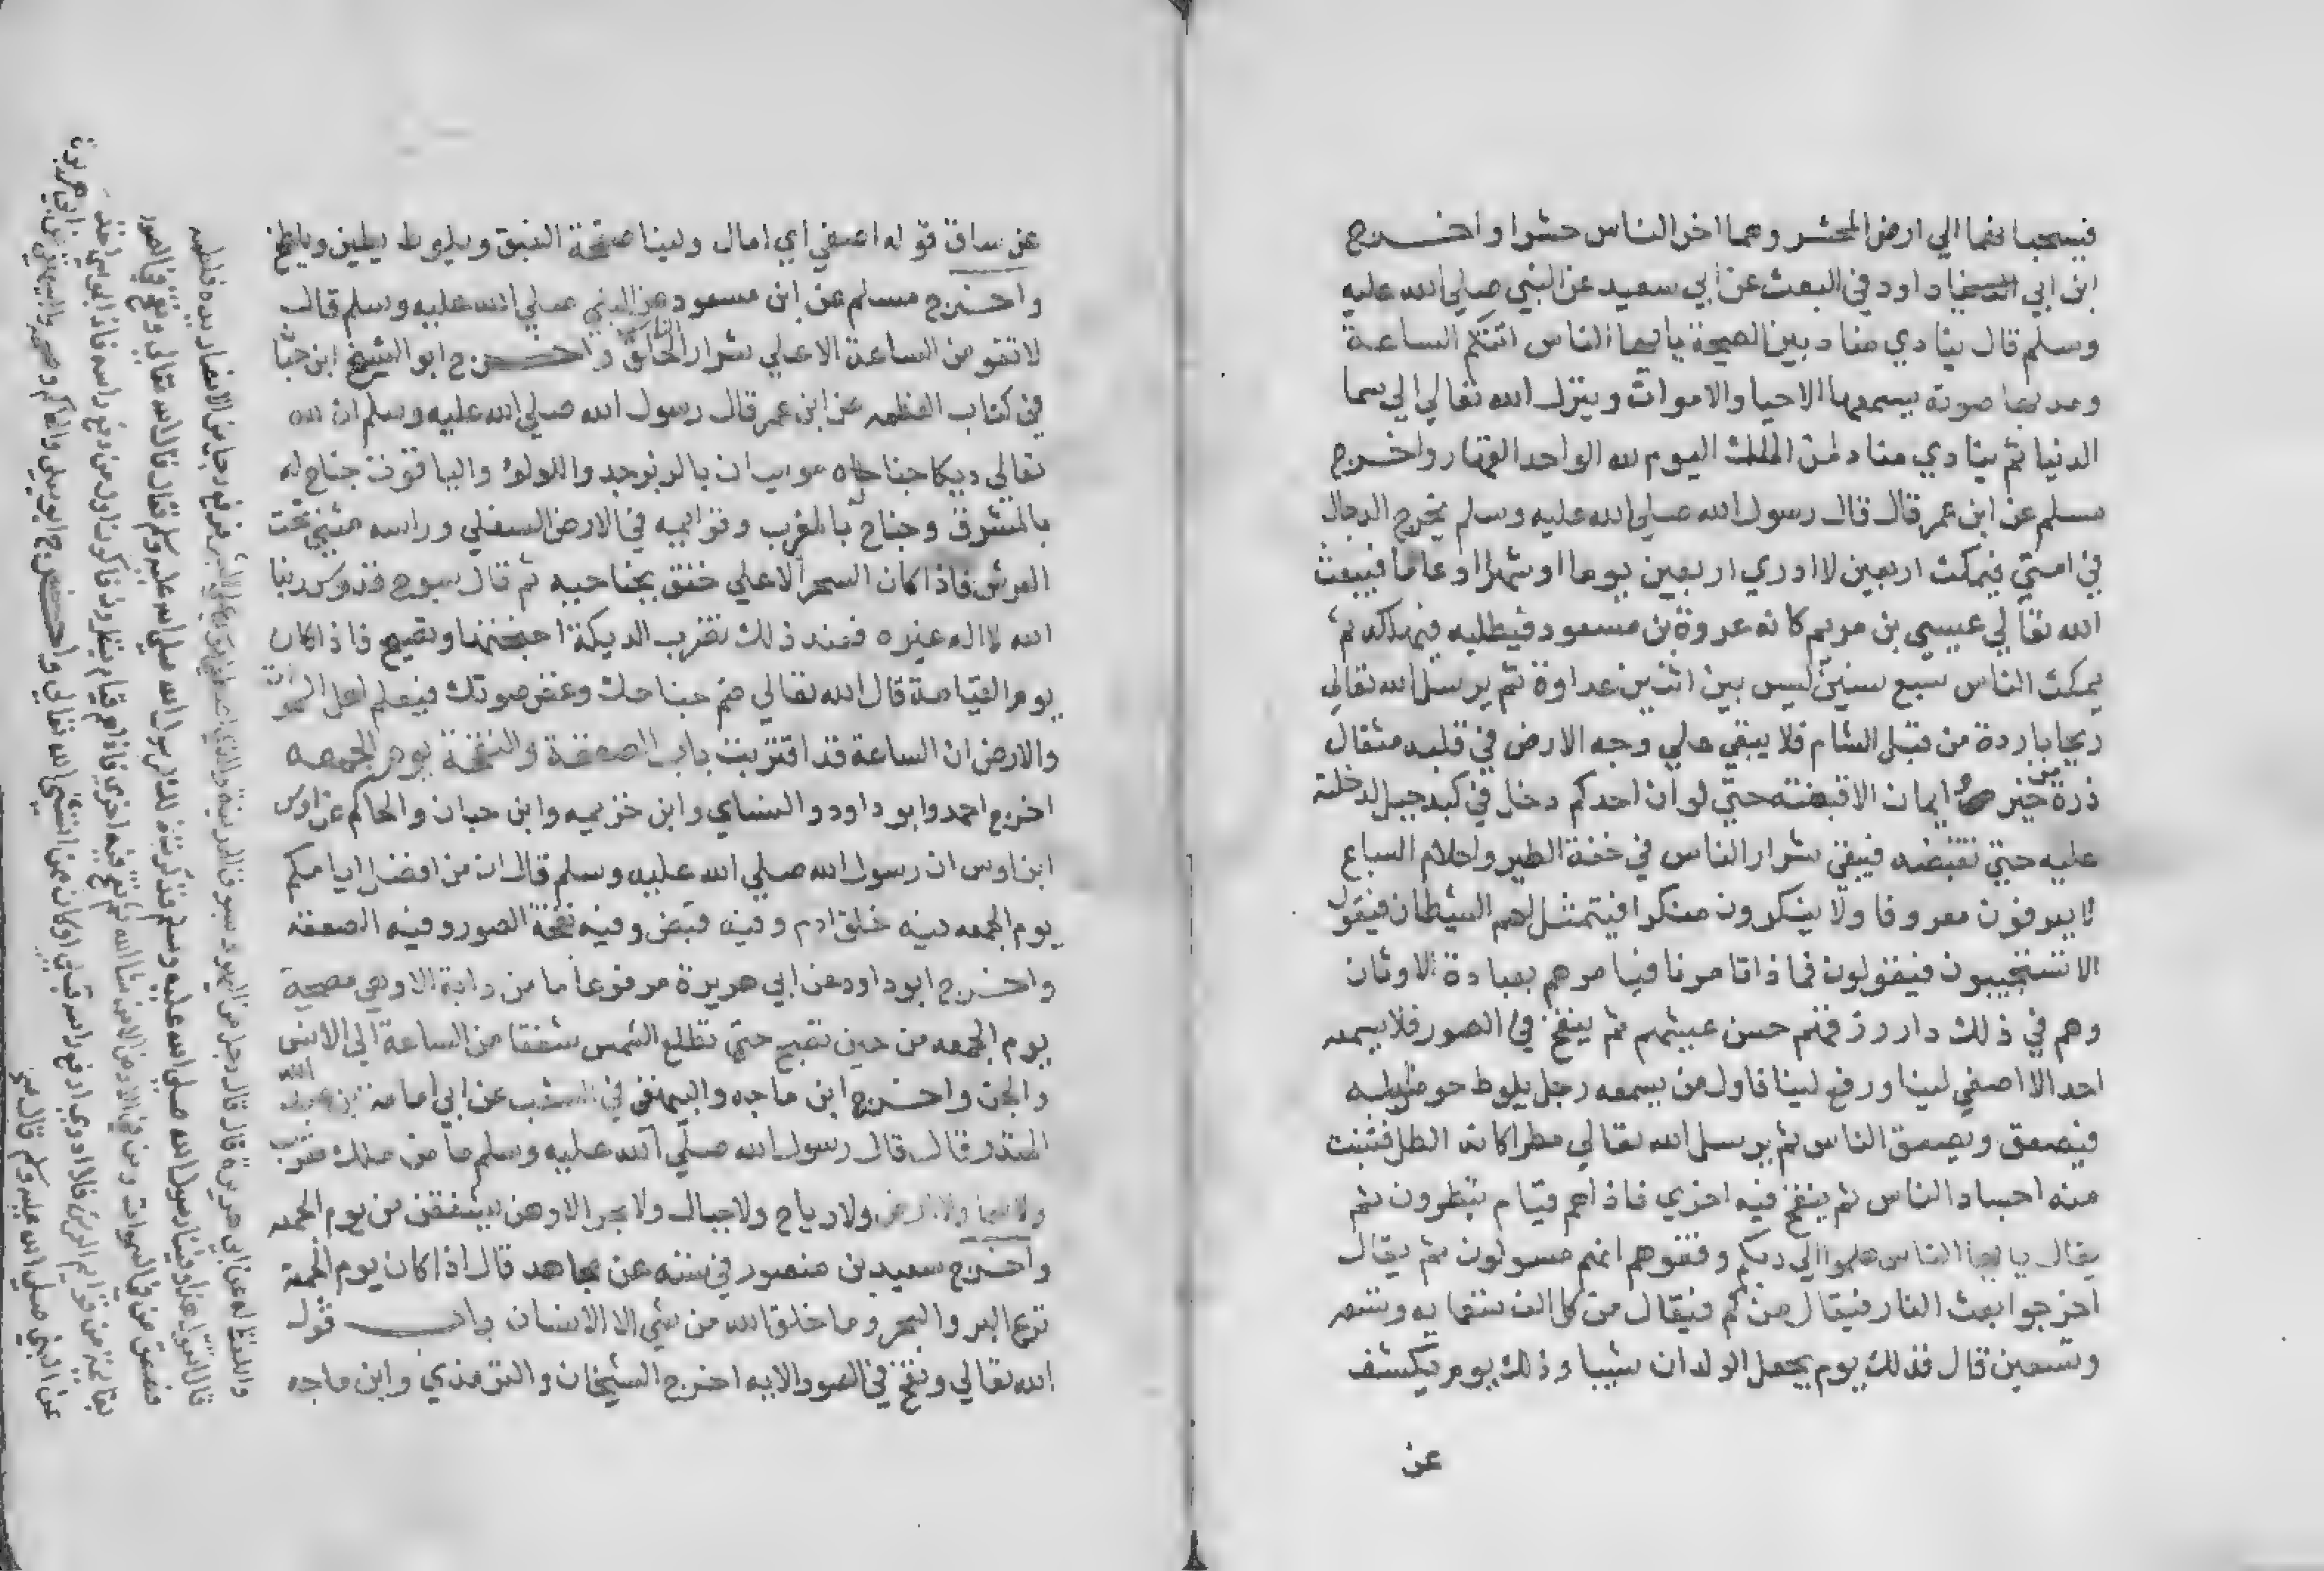 فيسحبانهما الي ارض المحشر وهما اخر الناس حشرا واخرج
ابن ابي داود في البعث عن ابي سعيد عن النبي صلي الله عليه
وسلم قال ينادي مناد بين الصيحة يا ايها الناس اتتكم الساعة
ومد بها صوته يسمعها الاحيا والاموات وينزل الله تعالي الي سما
الدنيا ثم ينادي مناد لمن الملك اليوم لله الواحد القهار واخرج
مسلم عن ابن عمر قال قال رسول الله صلي الله عليه وسلم يخرج الدجال
في امتي فيمكث اربعين لا ادري اربعين يوما او شهرا او عاما فيبعث
الله تعالي عيسي بن مريم كانه عروة بن مسعود فيطلبه فيهلكه ثم
يمكث الناس سبع سنين ليس بين اثنين عداوة ثم يرسل الله تعالي
ريحا باردة من قبل الشام فلا يبقي علي وجه الارض في قلبه مثقال
ذرة من خير ايمان الا قبضته حتي لو ان احدكم دخل في كبد جبل لدخلته
عليه حتي تقبضه فيبقي شرار الناس في خفة الطير واحلام السباع
لا يعرفون معروفا ولا ينكرون منكرا فيتمثل لهم الشيطان فيقول
الا تستجيبون فيقولون فماذا تامرنا فيامرهم بعبادة الاوثان
وهم في ذلك دار رزقهم حسن عيشهم ثم ينفخ في الصور فلا يسمعه
احد الا اصغي ليتا ورفع ليتا فاول من يسمعه رجل يلوط حوض ابله
فيصعق ويصعق الناس ثم يرسل الله تعالي مطرا كانه الطل فتنبت
منه اجساد الناس ثم ينفخ فيه اخري فاذا هم قيام ينظرون ثم
يقال يا ايها الناس هلموا الي ربكم وقفوهم انهم مسولون ثم يقال
اخرجوا بعث النار فيقال من كم فيقال من كل الف تسعمايه وتسعه
وتسعين قال فذلك يوم يجعل الولدان شيبا وذلك يوم يكشف
عن
عن ساق قوله اصغي اي امال وليتا صفحة العنق ويلوط يطين ويصلح
واخرج مسلم عن ابن مسعود عن النبي صلي الله عليه وسلم قال
لا تقوم الساعة الا علي شرار الناس واخرج ابو الشيخ ابن حبان
في كتاب العظمه عن ابن عمر قال رسول الله صلي الله عليه وسلم ان لله
تعالي ديكا جناحاه موشيان بالزبرجد واللولو والياقوت جناح له
بالمشرق وجناح له بالمغرب وقوايمه في الارض السفلي وراسه مثني تحت
العرش فاذا كان السحر الاعلي خفق بجناحيه ثم قال سبوح قدوس ربنا
الله لا اله غيره فعند ذلك تضرب الديكة اجنحتها وتصيح فاذا كان
يوم القيامة قال الله تعالي ضم جناحك وغض صوتك فيعلم اهل السموات
والارض ان الساعة قد اقتربت باب الصعقة والنفخة يوم الجمعه
اخرج احمد وابو داود والنساي وابن خزيمه وابن حبان والحاكم عن اوس
ابن اوس ان رسول الله صلي الله عليه وسلم قال ان من افضل ايامكم
يوم الجمعه فيه خلق ادم وفيه قبض وفيه نفخة الصور وفيه الصعقة
واخرج ابو داود عن ابي هريرة مرفوعا ما من دابة الا وهي مصيخة
يوم الجمعه من حين تصبح حتي تطلع الشمس شفقا من الساعة الا الانس
والجن واخرج ابن ماجه والبيهقي في الشعب عن ابي امامة بن عبد
المنذر قال قال رسول الله صلي الله عليه وسلم ما من ملك مقرب
ولا سما ولا ارض ولا رياح ولا جبال ولا بحر الا وهن يشفقن من يوم الجمعه
واخرج سعيد بن منصور في سننه عن مجاهد قال اذا كان يوم الجمعة
فزع البر والبحر وما خلق الله من شي الا الانسان باب قول
الله تعالي ونفخ في الصور الايه اخرج الشيخان والترمذي وابن ماجه
واللفظ له عن ابي هريرة قال قال رجل من اليهود بسوق المدينة والذي اصطفي موسي علي البشر فرفع رجل من الانصار يده فلطمه
قال اتقول هذا وفينا رسول الله صلي الله عليه وسلم فذكرت ذلك لرسول الله صلي الله عليه وسلم فقال قال الله تعالي ونفخ في الصور
فصعق من في السموات ومن في الارض الا من شا الله ثم نفخ فيه اخري فاذا هم قيام ينظرون فاكون اول من رفع راسه فاذا موسي اخذ
بقايمة من قوايم العرش فلا ادري ارفع راسه قبلي او كان ممن استثني الله تعالي واخرج ابو يعلي والحاكم وصححه والبيهقي عن ابي هريرة
عن النبي صلي الله عليه وسلم قال